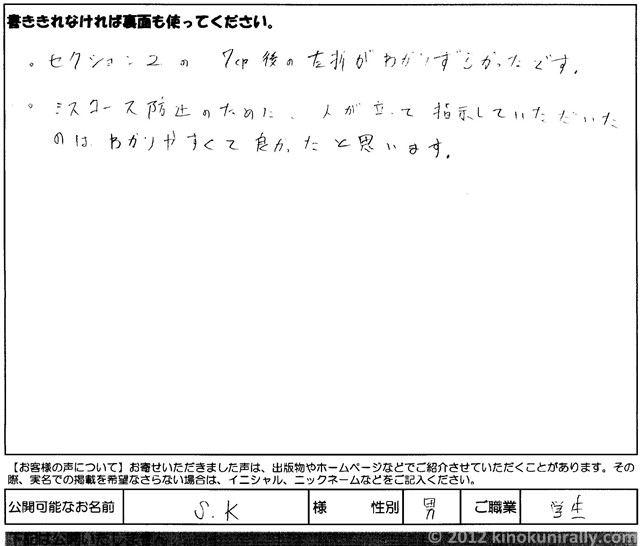 書ききれなければ裏面も使ってください。
。セクション2の 7cp後の左折がわかりずらかったです。
。ミスコース防止のために、人が立って指示していただいた
のは、わかりやすくて良かったと思います。
【お客様の声について】お寄せいただきました声は、出版物やホームページなどでご紹介させていただくことがあります。その
際、実名での掲載を希望なさらない場合は、イニシャル、ニックネームなどをご記入ください。
公開可能なお名前 S.K 様 性別 男 ご職業 学生
下記は公開いたしません
© 2012 kinokunirally.com